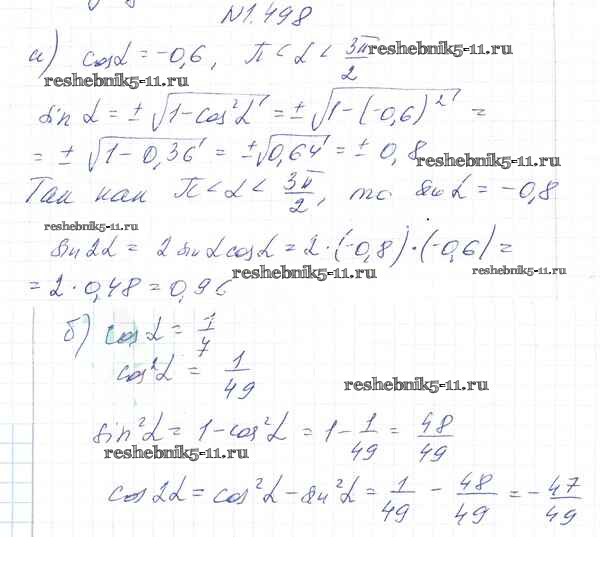 N1.498
а) cosα = -0,6, π < α < 3π/2
reshebnik5-11.ru
reshebnik5-11.ru
sinα = ± √(1-cos²α) = ± √(1-(-0,6)²) =
= ± √(1-0,36) = ±√(0,64) = ± 0,8
reshebnik5-11.ru
Так как π < α < 3π/2, то sinα = -0,8
reshebnik5-11.ru
sin2α = 2 sinα cosα = 2·(-0,8)·(-0,6) =
reshebnik5-11.ru
reshebnik5-11.ru
= 2·0,48 = 0,96
б) cosα = 1/7
cos²α = 1/49
reshebnik5-11.ru
sin²α = 1-cos²α = 1 - 1/49 = 48/49
reshebnik5-11.ru
cos2α = cos²α - sin²α = 1/49 - 48/49 = -47/49